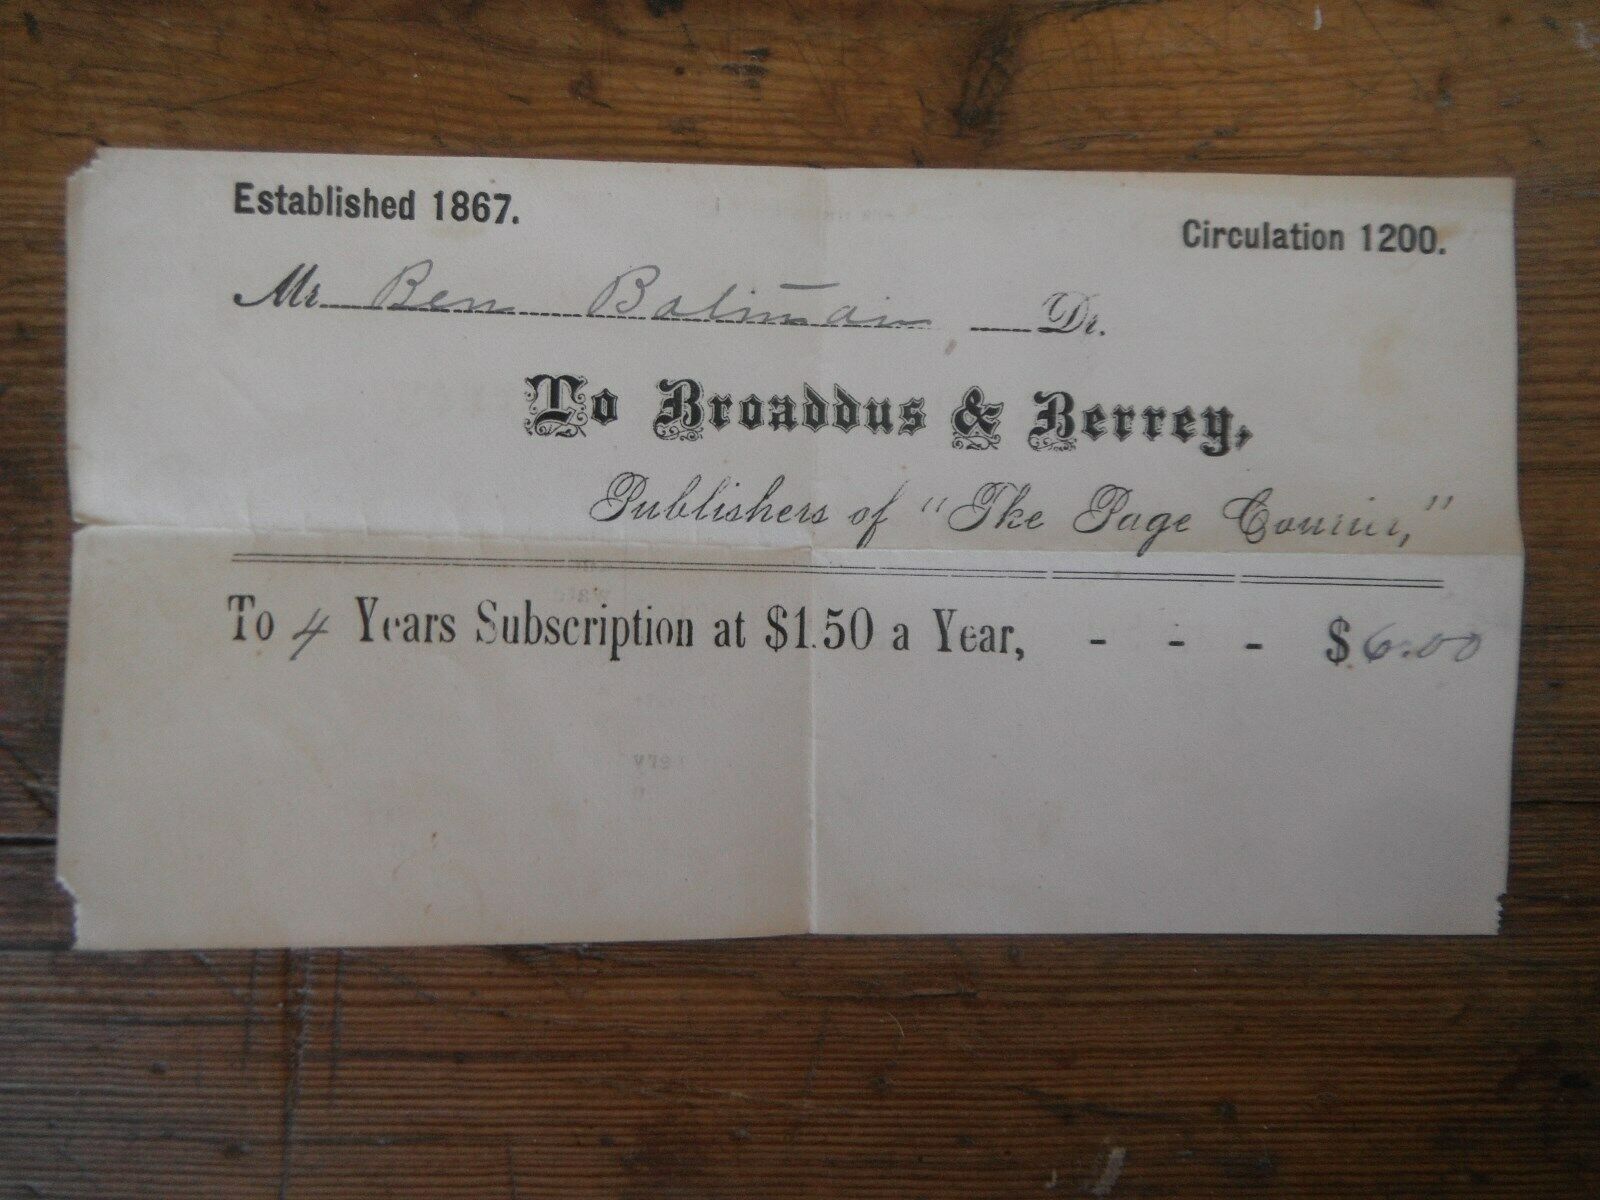 Established 1867.
Circulation 1200.
Mr. Ben Dr.
To Broaddus & Berrey,
Publishers of "The Page Courier,"
To 4 Years Subscription at $1.50 a Year, - - - $6.00